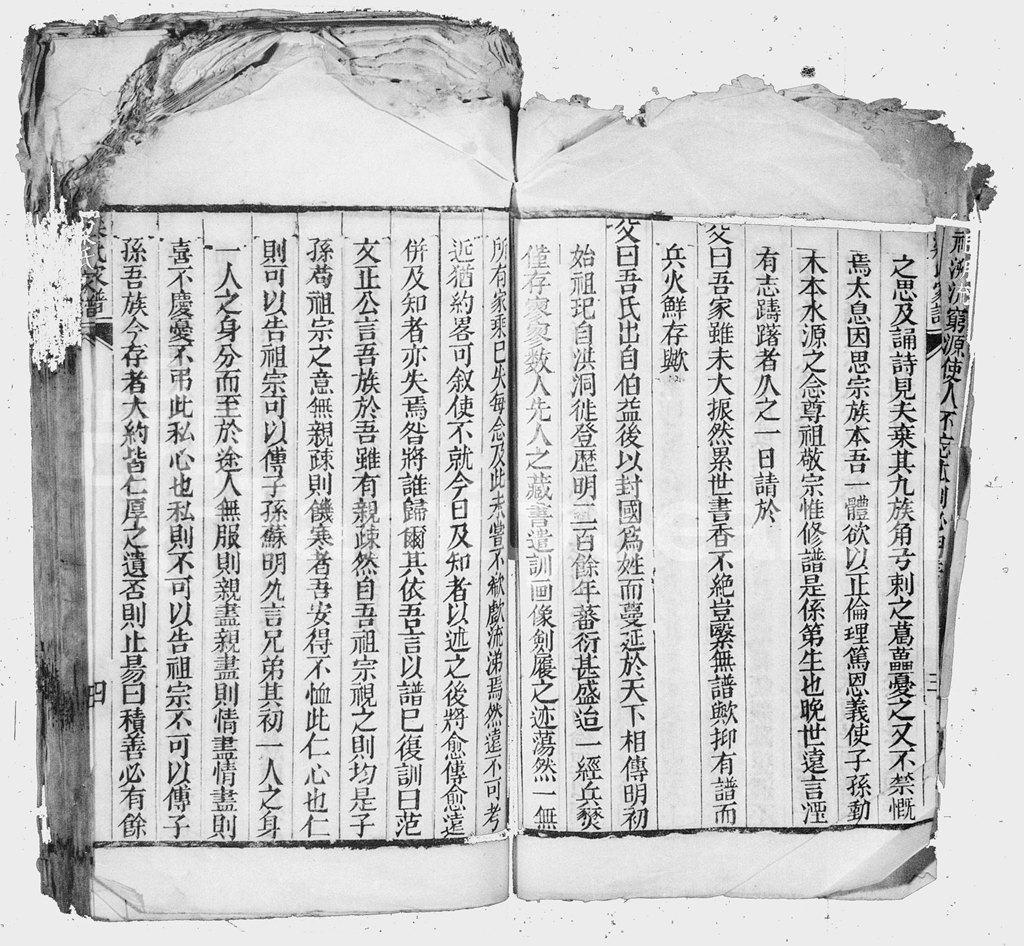 流窮源使人不忘本
之思及誦詩見夫棄其九族角弓刺之葛藟憂之又不禁慨
焉太息因思宗族本吾一體欲以正倫理篤恩義使子孫動
木本水源之念尊祖敬宗惟修譜是係第生也晚世遠言湮
有志躊躇者久之一日請於
父曰吾家雖未大振然累世書香不絶豈繄無譜歟抑有譜而
兵火鮮存歟
父曰吾氏出自伯益後以封國為姓而蔓延於天下相傳明初
始祖玘自洪洞徙登歷明二百餘年蕃衍甚盛迨一經兵燹
僅存寥寥數人先人之藏書遺訓画像劍履之迹蕩然一無
所有家乘已失每念及此未嘗不欷歔流涕焉然遠不可考
近猶約畧可叙使不就今日及知者以述之後將愈傳愈遠
併及知者亦失焉咎將誰歸爾其依吾言以譜已復訓曰范
文正公言吾族於吾雖有親疎然自吾祖宗視之則均是子
孫苟祖宗之意無親疎則饑寒者吾安得不恤此仁心也仁
則可以告祖宗可以傳子孫蘇明允言兄弟其初一人之身
一人之身分而至於途人無服則親盡親盡則情盡情盡則
喜不慶憂不弔此私心也私則不可以告祖宗不可以傳子
孫吾族今存者大約皆仁厚之遺否則止昜曰積善必有餘
氏家譜
四